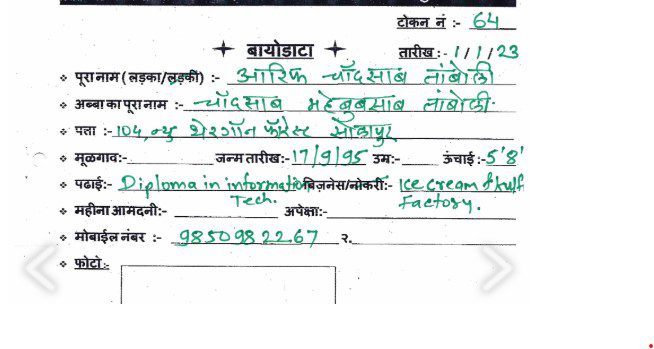 टोकन नं :- 64
बायोडाटा
तारीख :- 1/1/23
पूरा नाम (लड़का/लड़की) :- आरिफ चाँदसाब तांबोली
अब्बा का पूरा नाम :- चाँदसाब महेबुबसाब तांबोली.
पता :- 104, न्यु शेरगॉन फॉरेस्ट सोलापुर
मूळगाव:- जन्म तारीख:- 17/9/95 उम्र:- ऊंचाई :- 5'8'
पढाई:- Diploma in information Tech. बिज़नेस/नोकरी:- Ice cream & kulfi Factory.
महीना आमदनी:- अपेक्षा:-
मोबाईल नंबर :- 9850982267 २.
फोटो:-